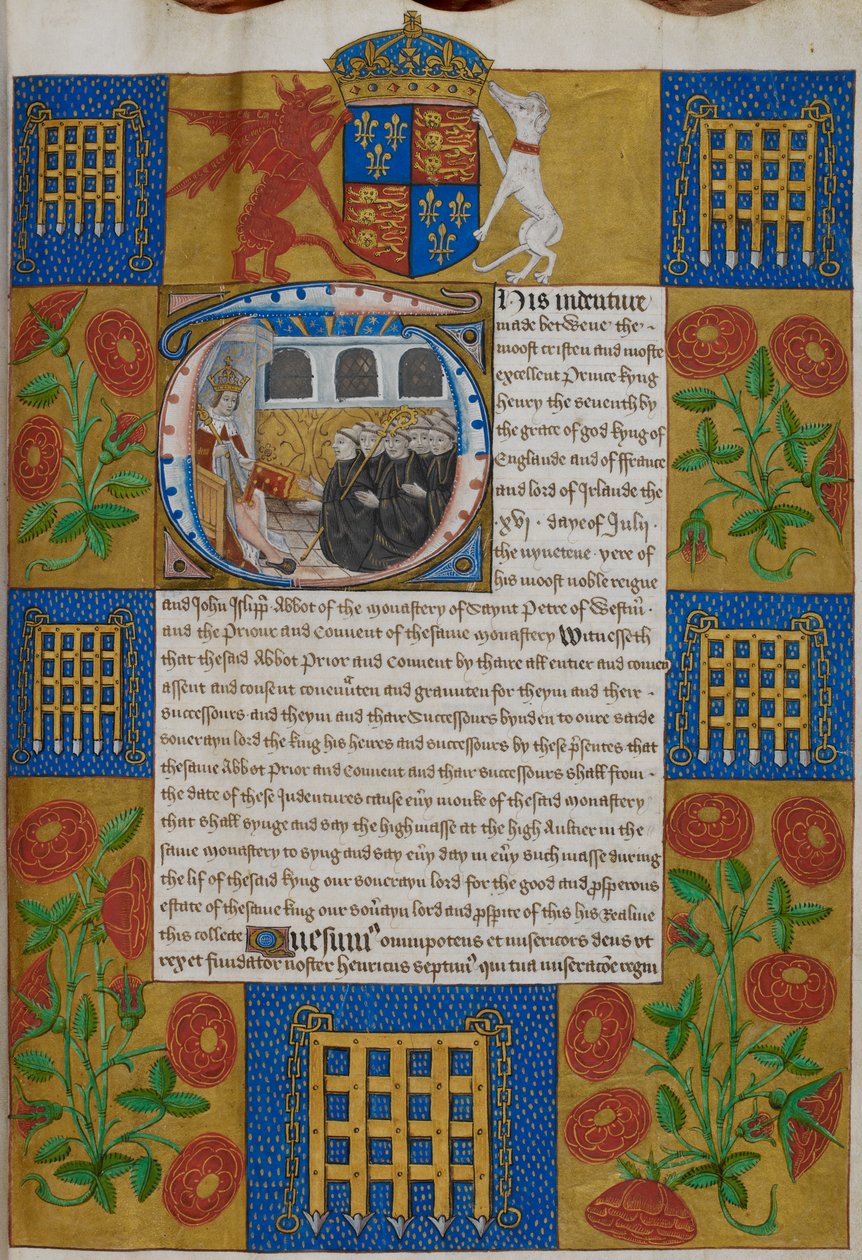 This indenture
made betwene the
moost cristen and moste
excellent Prince kyng
henry the seventh by
the grace of god kyng of
Englande and of ffrance
and lord of Irlande the
xvi · daye of Julii ·
the nynetene · yere of
his moost noble reigne
and John Islipp Abbot of the monastery of Saynt Petre of Westm̄ ·
and the Priour and Convent of thesame monastery Witnesseth
that thesaid Abbot Prior and Convent by thaire all entier and comen
assent and consent coven̄nten and graunten for theym and their
successours and theym and thair Successours bynden to oure saide
soverayn lord the king his heires and successours by these p̄sentes that
thesame Abbot Prior and Convent and thair successours shall from ·
the date of these Indentures cause ev̄y monke of thesaid monastery
that shall synge and say the high masse at the high Aultier in the
same monastery to syng and say ev̄y day in ev̄y such masse during
the lif of thesaid kyng our soverayn lord for the good and p̱sperous
estate of thesame king our sov̄ayn lord and p̱sp̱ite of this his Realme
this collecte Quesum⁹ omnipotens et misericors deus vt
rex et fundator noster henricus septim⁹ qui tua miserac̄oe regni